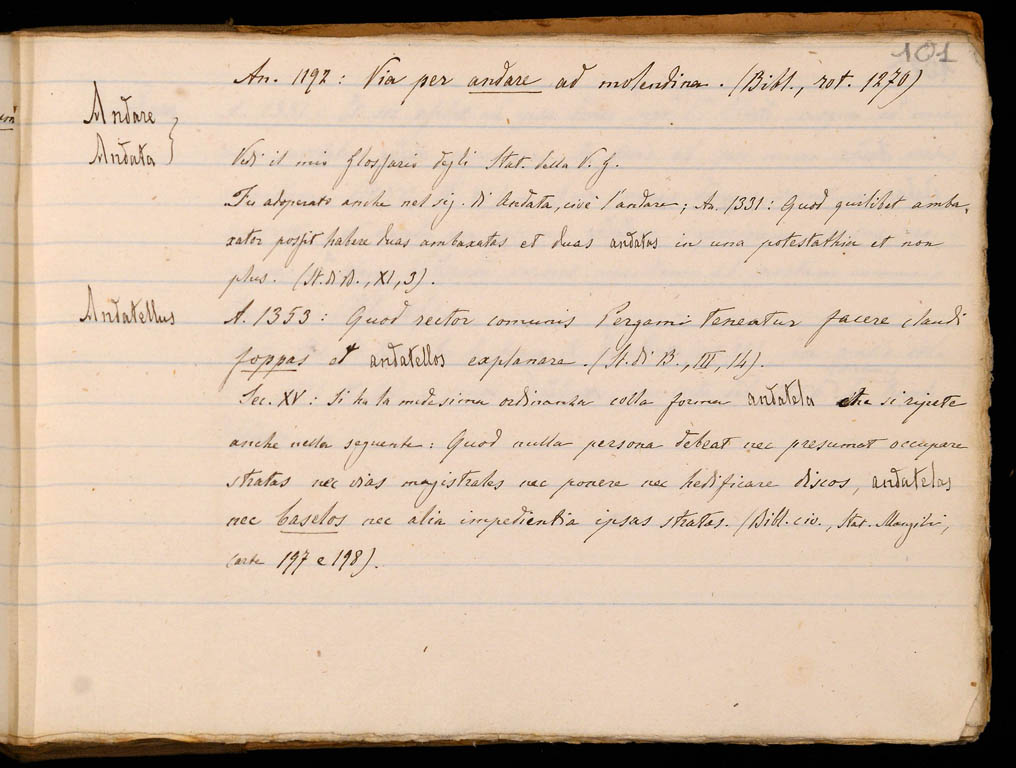 101
An. 1192: Via per andare ad molendina. (Bibl., rot. 1270)
Andare
Andata }
Vedi il mio Glossario degli Stat. della V. G.
Fu adoperato anche nel sig. di Andata, cioè l'andare; An. 1331: Quod quilibet amba-
xator possit habere duas ambaxatas et duas andatas in una potestathia et non
plus. (St. di B., XI, 3).
Andatellus A. 1353: Quod rector comunis Pergami teneatur facere claudi
foppas et andatellos explanare. (St. di B., III, 14).
Sec. XV: Si ha la medesima ordinanza colla forma andatela che si ripete
anche nella seguente: Quod nulla persona debeat nec presumat occupare
stratas nec vias magistrales nec ponere nec hedificare discos, andatelas
nec baselos nec alia impedientia ipsas stratas. (Bibl. civ., Stat.
carte 197 e 198).